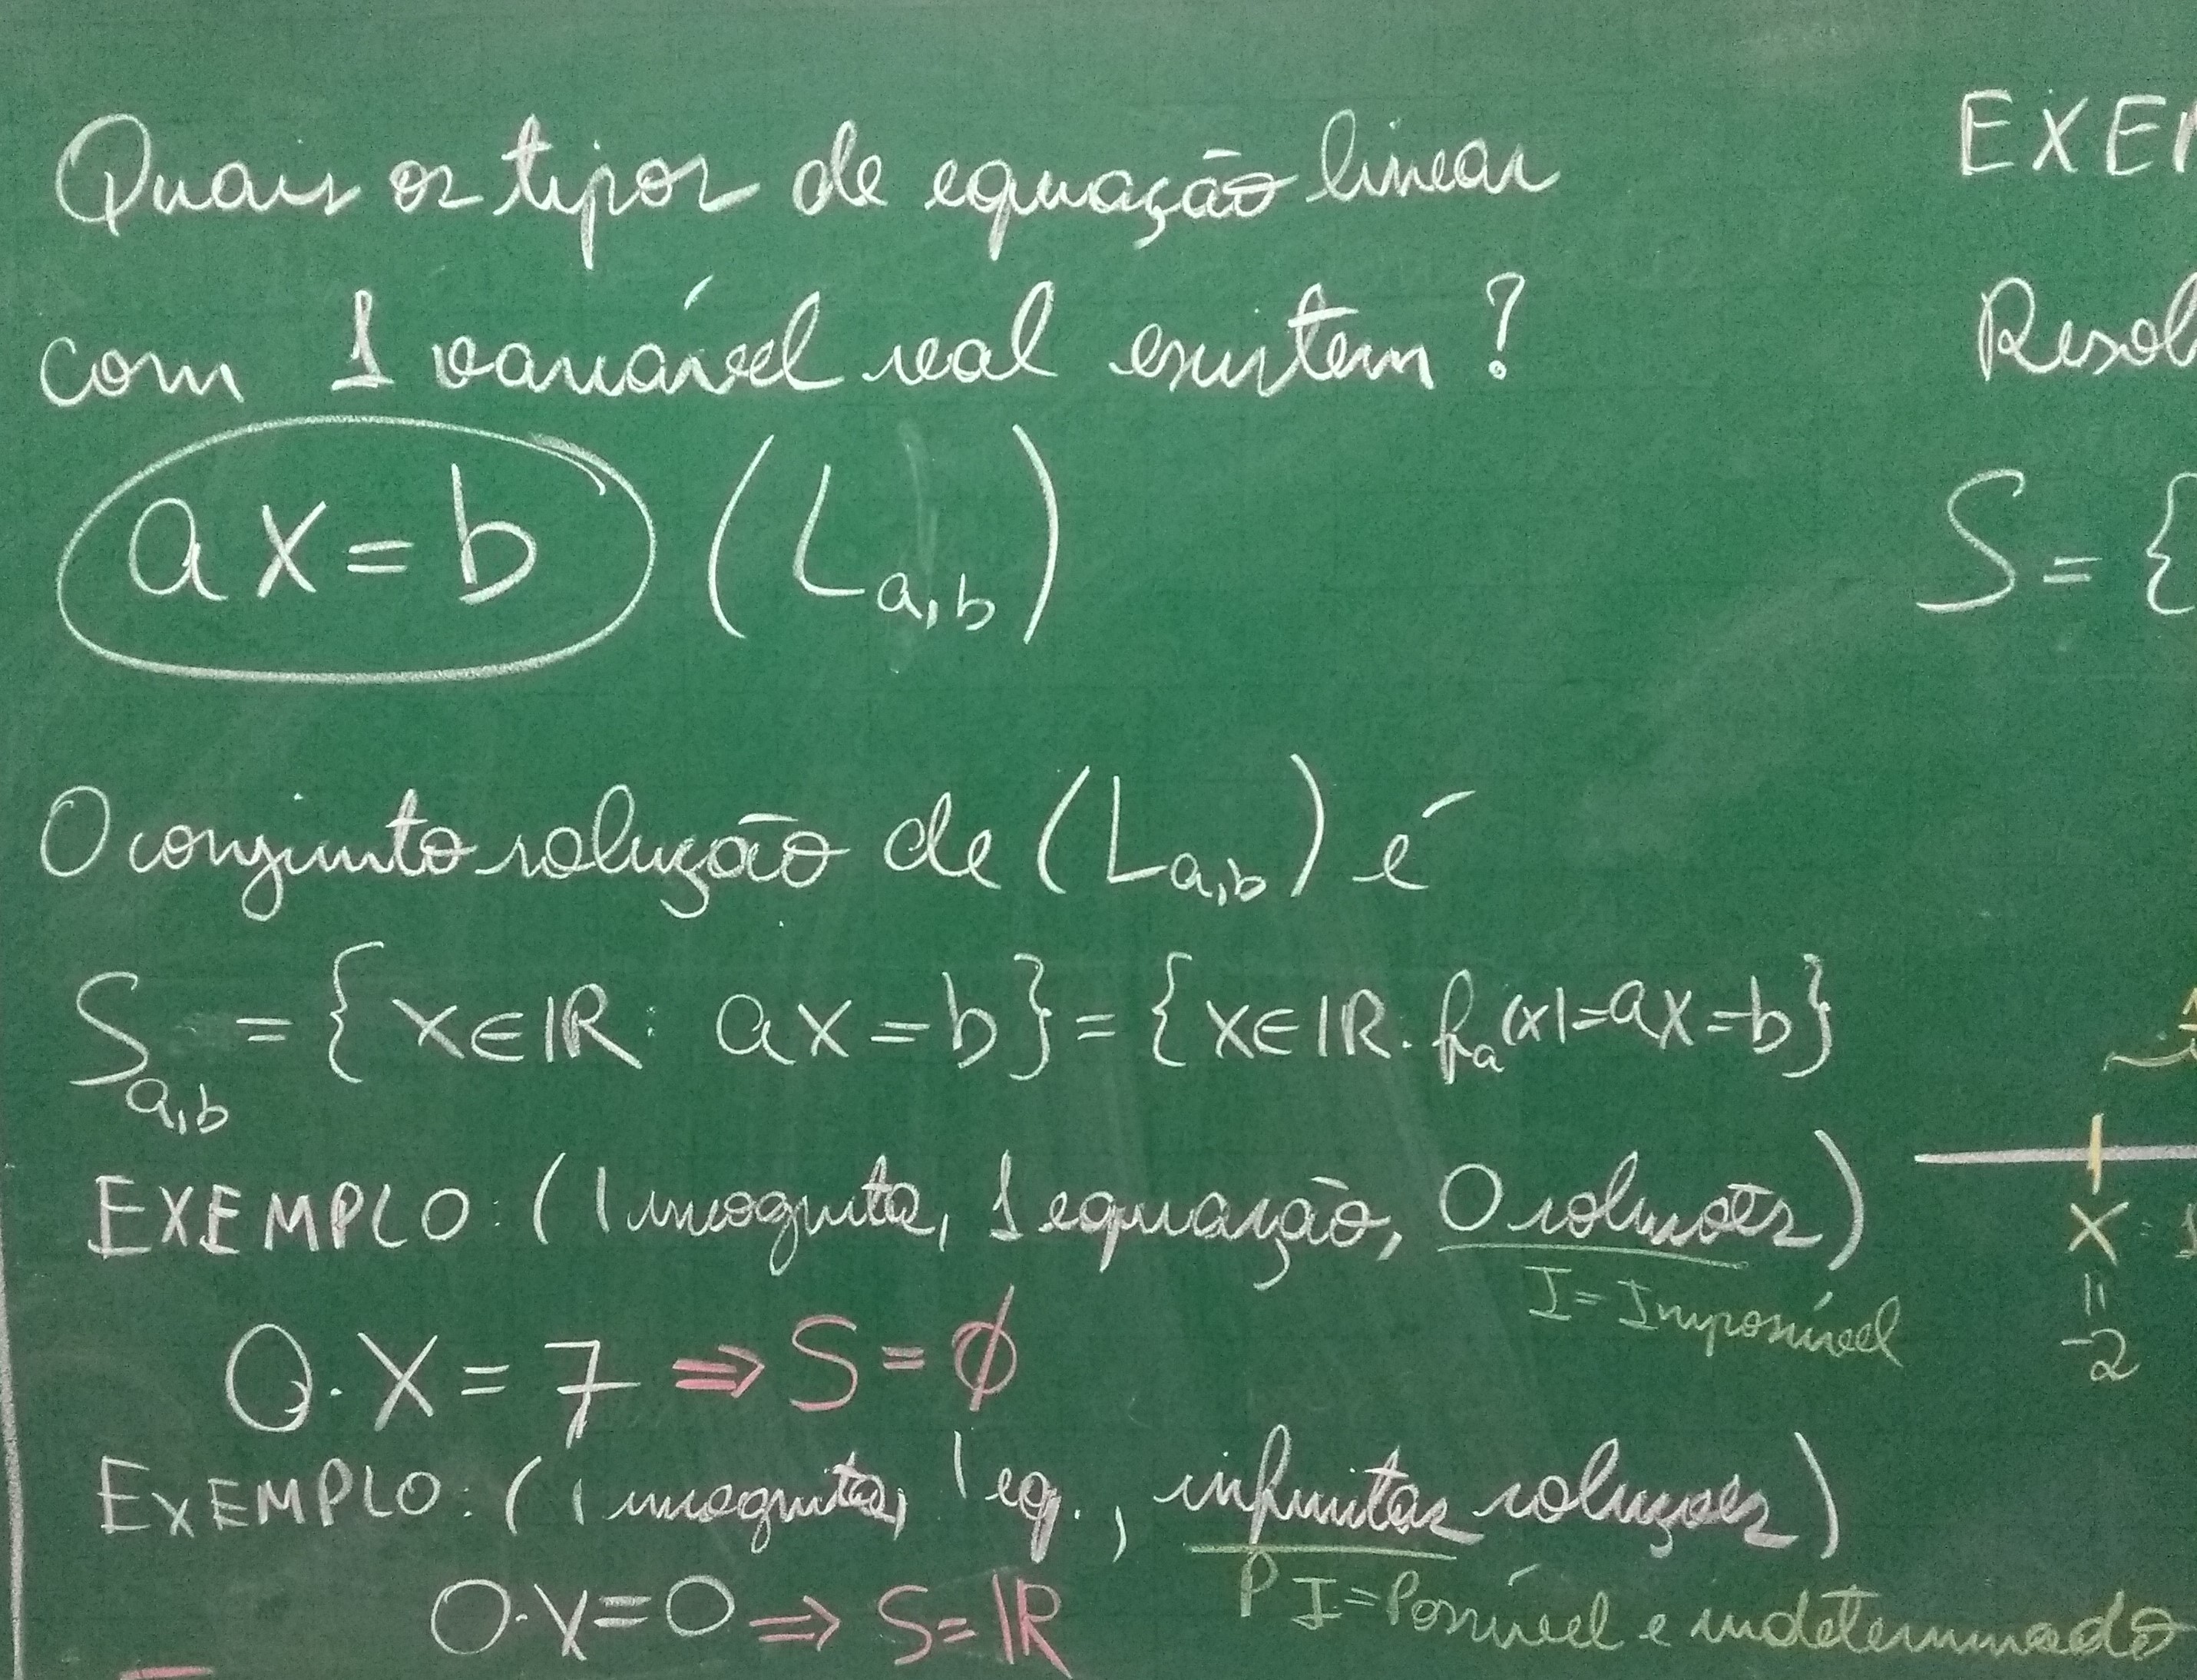 Quais os tipos de equação linear
com 1 variável real existem?
ax=b (La,b)
O conjunto solução de (La,b) é
Sa,b = {x∈ℝ: ax=b} = {x∈ℝ. fa(x)=ax=b}
EXEMPLO: (1 incognita, 1 equação, 0 soluções)
I=Impossível
0.X=7 ⇒ S=∅
EXEMPLO: (1 incognita, 1 eq., infinitas soluções)
0.X=0 ⇒ S=ℝ
PI=Possível e indeterminado
EXEM
Resol
S={
X
=
-2